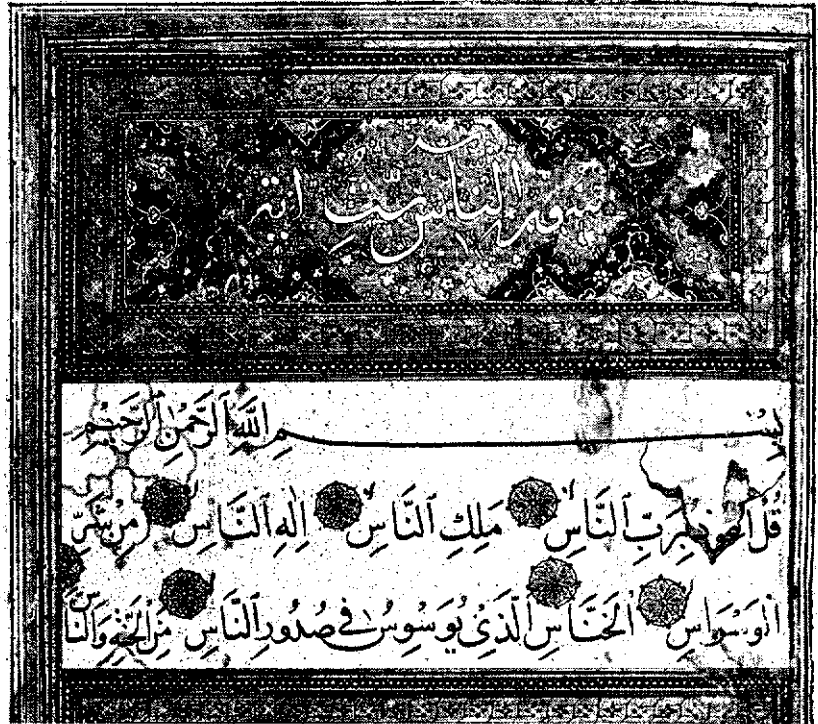 سورة الناس ست اية
بِسْمِ اللَّهِ الرَّحْمٰنِ الرَّحِيْمِ
قُلْ اَعُوذُ بِرَبِّ النَّاسِ مَلِكِ النَّاسِ اِلٰهِ النَّاسِ مِنْ شَرِّ
الْوَسْوَاسِ الْخَنَّاسِ الَّذِىْ يُوَسْوِسُ فِى صُدُورِ النَّاسِ مِنَ الْجِنَّةِ وَالنَّاسِ